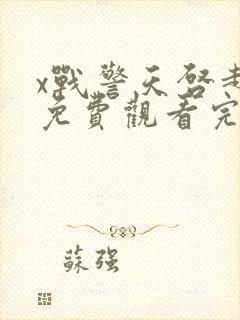 x戰警天啓
免費觀看完
蘇强